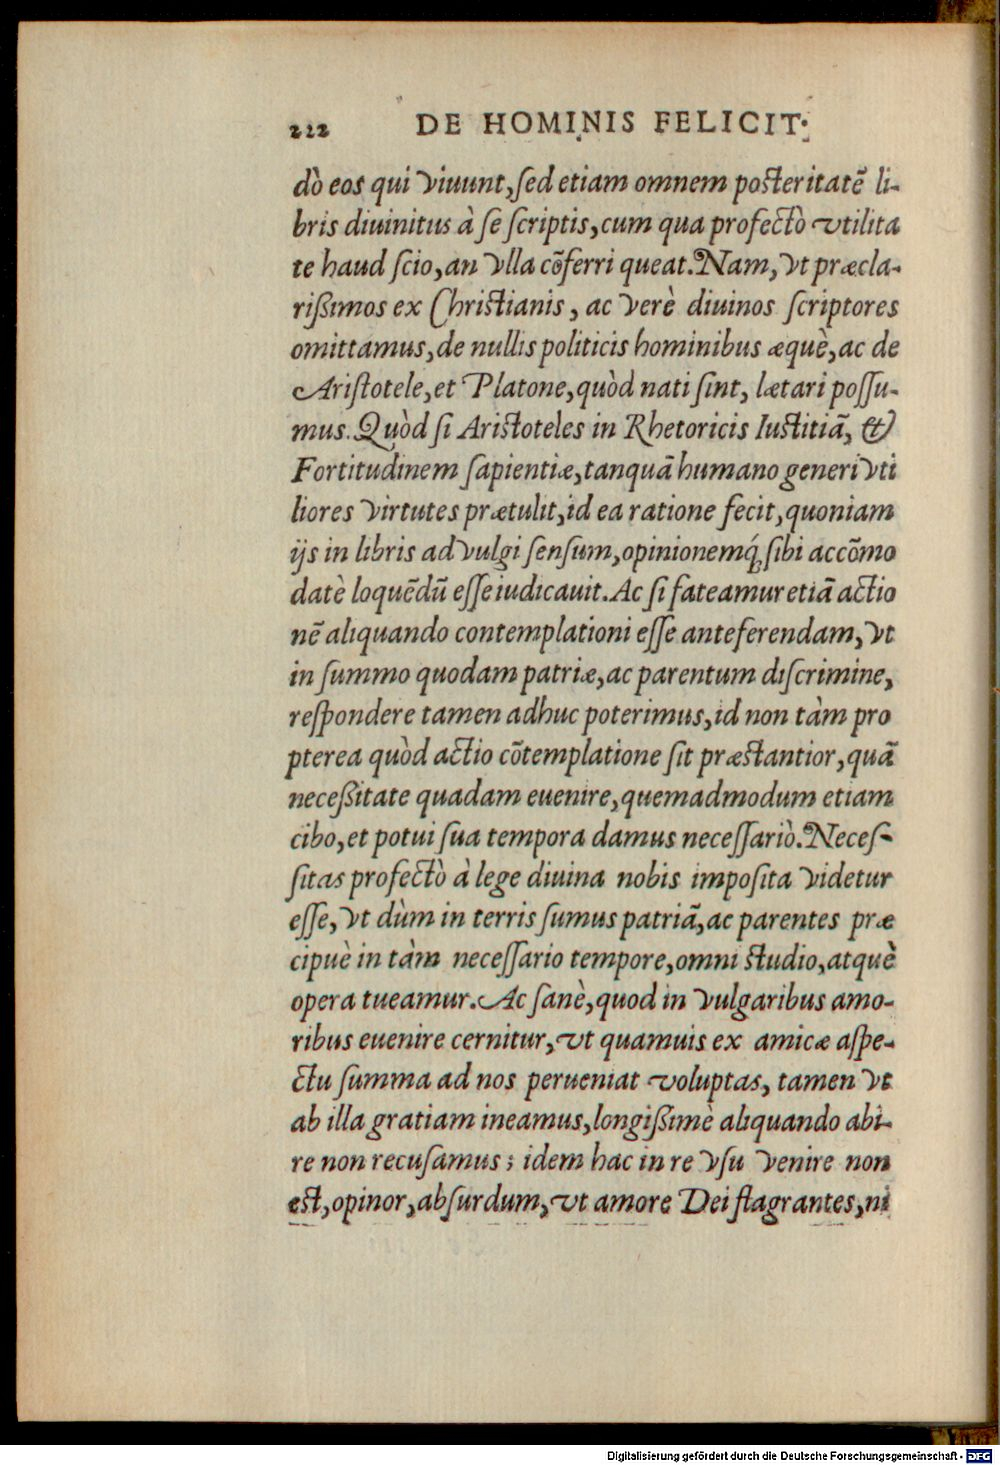 212 DE HOMINIS FELICIT.
dò eos qui viuunt, sed etiam omnem posteritatē li-
bris diuinitus à se scriptis, cum qua profectò vtilita
te haud scio, an vlla cōferri queat. Nam, vt præcla-
rißimos ex Christianis, ac verè diuinos scriptores
omittamus, de nullis politicis hominibus æquè, ac de
Aristotele, et Platone, quòd nati sint, lætari possu-
mus. Quòd si Aristoteles in Rhetoricis Iustitiā, &
Fortitudinem sapientiæ, tanquā humano generi vti
liores virtutes prætulit, id ea ratione fecit, quoniam
ijs in libris ad vulgi sensum, opinionemq́; sibi accōmo
datè loquēdū esse iudicauit. Ac si fateamur etiā actio
nē aliquando contemplationi esse anteferendam, vt
in summo quodam patriæ, ac parentum discrimine,
respondere tamen adhuc poterimus, id non tàm pro
pterea quòd actio cōtemplatione sit præstantior, quā
neceßitate quadam euenire, quemadmodum etiam
cibo, et potui sua tempora damus necessariò. Neces-
sitas profectò à lege diuina nobis imposita videtur
esse, vt dùm in terris sumus patriā, ac parentes præ
cipuè in tàm necessario tempore, omni studio, atquè
opera tueamur. Ac sanè, quod in vulgaribus amo-
ribus euenire cernitur, vt quamuis ex amicæ aspe-
ctu summa ad nos perueniat voluptas, tamen vt
ab illa gratiam ineamus, longißimè aliquando abi-
re non recusamus; idem hac in re vsu venire non
est, opinor, absurdum, vt amore Dei flagrantes, ni
Digitalisierung gefördert durch die Deutsche Forschungsgemeinschaft - DFG